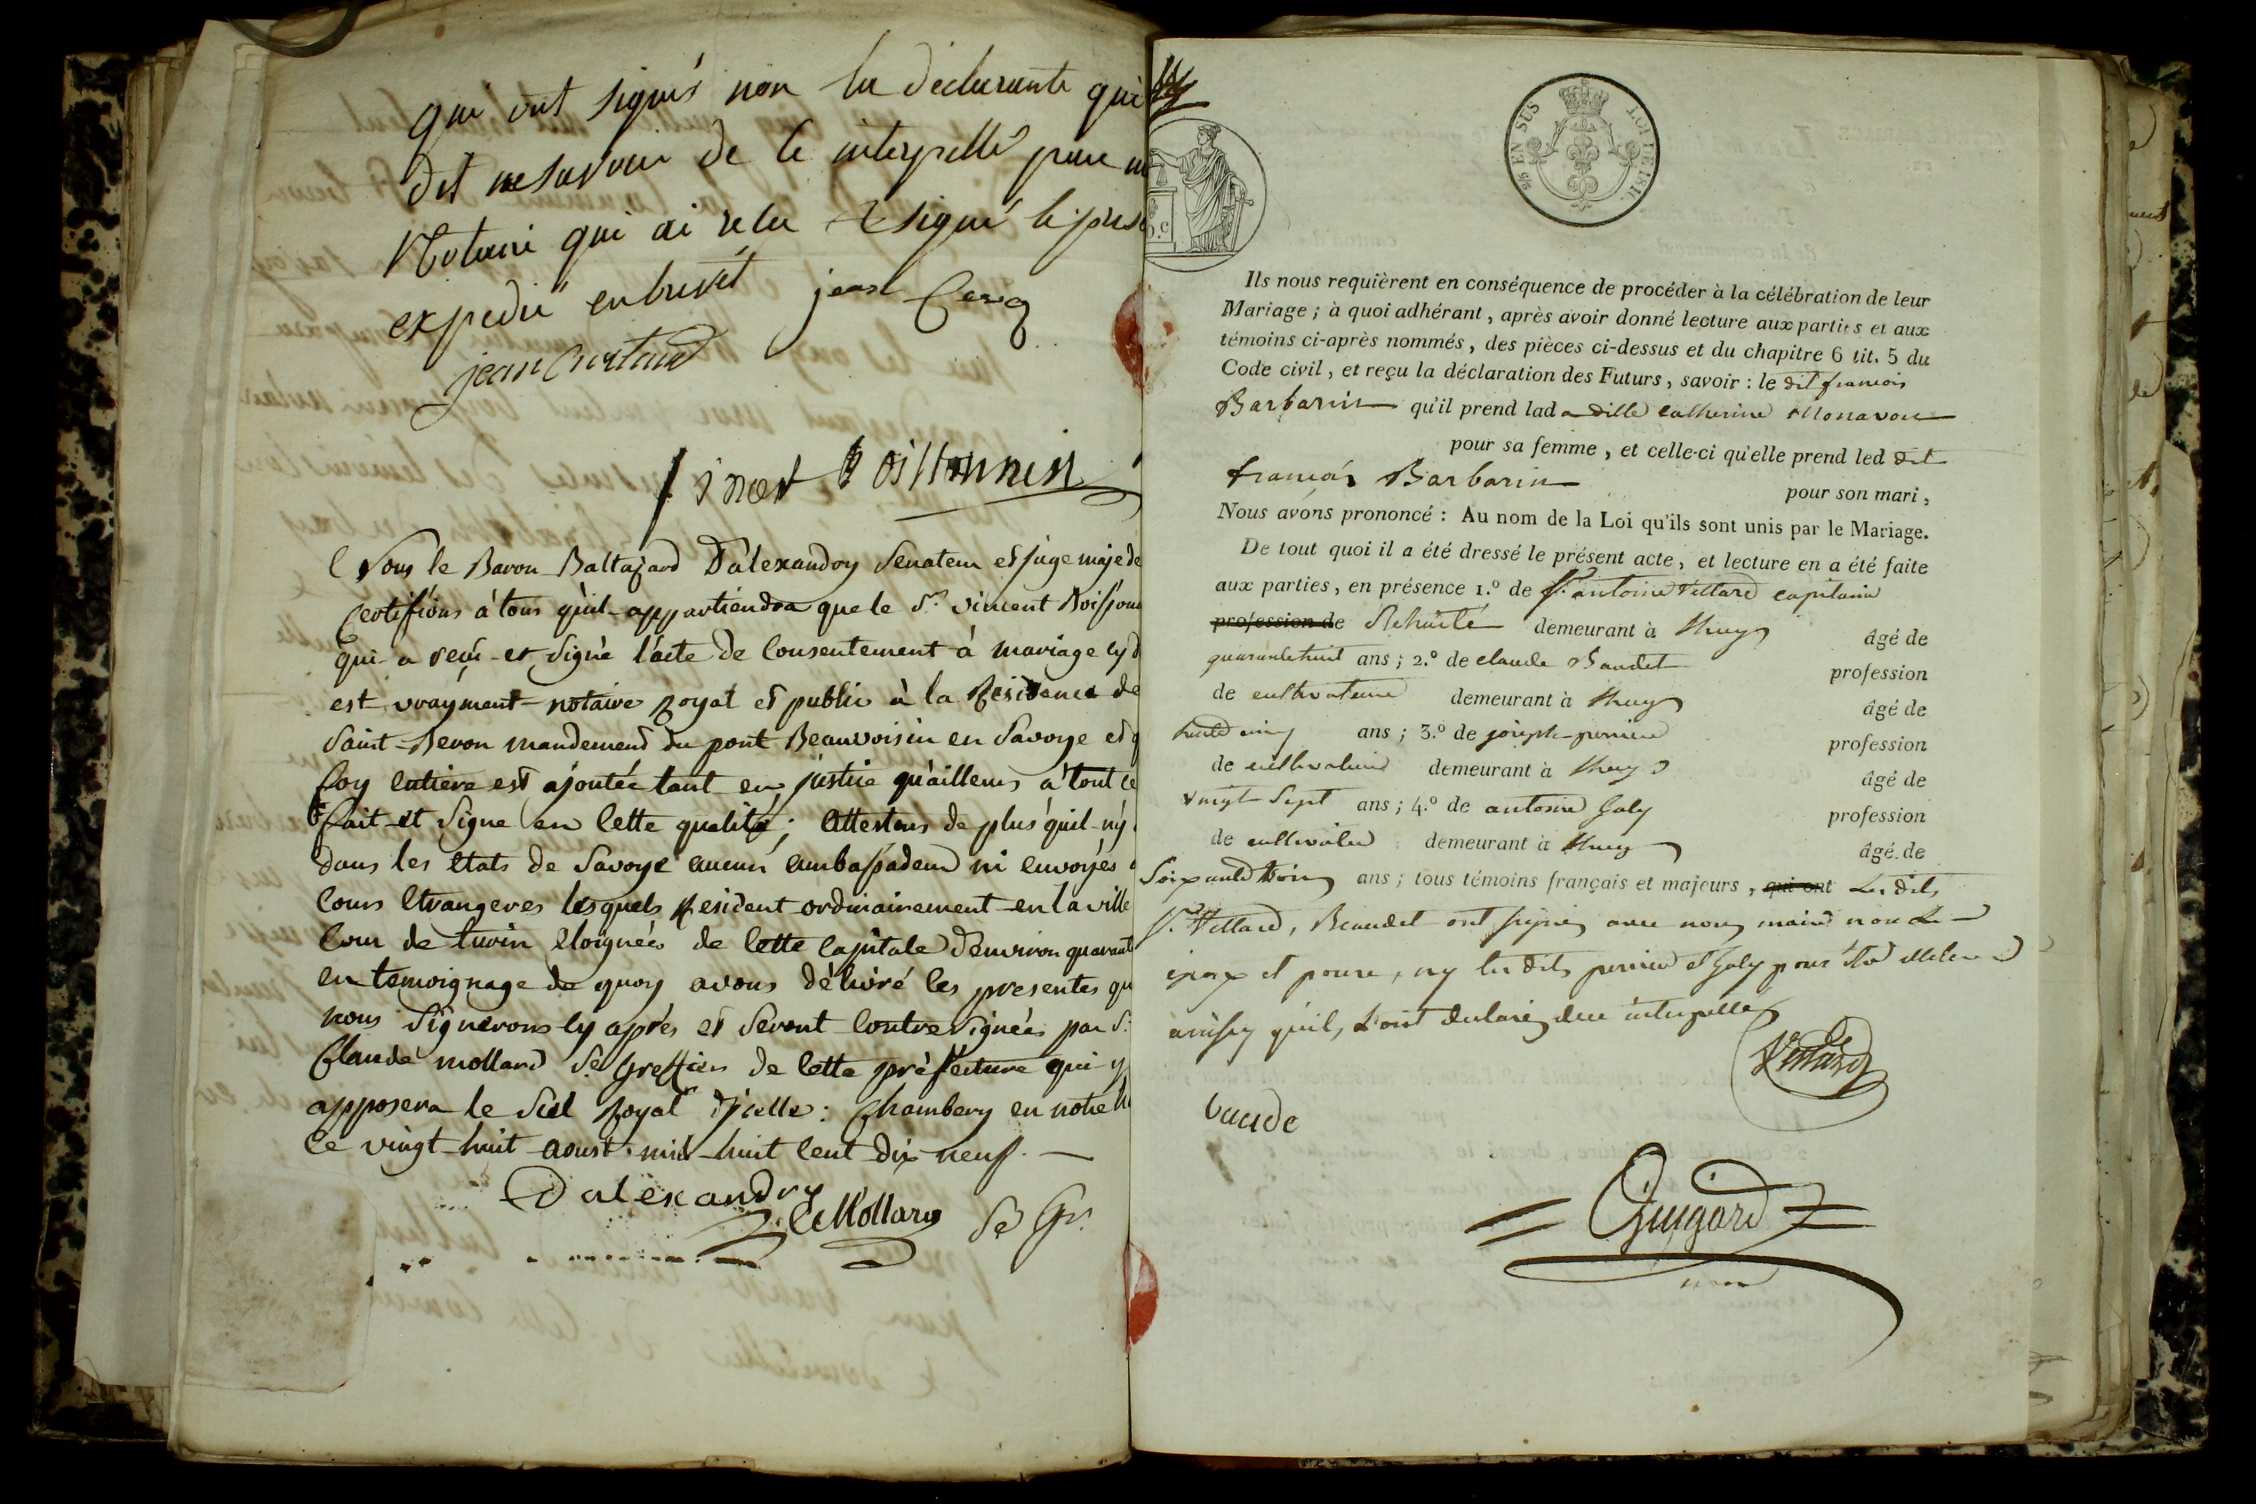 qui ont signés non la déclarante qui
dit ne savoir de ce interpellé par
Notaire qui ai relu & signé le pres
expedié en brevet jean Cerq
jean
Nous le Baron Baltazard D'alexandry Senateur et juge maje de
Certifions à tous qu'il appartiendra que le Sr. vincent Boissonn
qui a reçu et signé l'acte de Consentement à mariage cy d
est vrayment notaire Royal et public à la Résidence de
Saint Beron mandement du pont Beauvoisin en Savoye et q
foy entière est ajoutée tant en justice qu'ailleurs à tout ce
fait et signe en cette qualité; Attestons de plus qu'il n'y
dans les etats de Savoye aucun ambassadeur ni envoyés
Cours etrangeres lesquels Resident ordinairement en la ville
Cour de turin eloignées de cette Capitale d'environ quarant
en temoignage de quoy avons délivré les presentes qu
nous signerons cy après et seront Contresignées par Sr.
Claude mollard Se Greffier de cette préfecture qui y
apposera le Scel Royal d'icelle: Chambery en notre h
Ce vingt-huit aoust mil huit cent dix neuf.
D'alexandry
Mollard Se Gr.
EN SUS
LOI DE 181
Ils nous requièrent en conséquence de procéder à la célébration de leur
Mariage ; à quoi adhérant, après avoir donné lecture aux parties et aux
témoins ci-après nommés, des pièces ci-dessus et du chapitre 6 tit. 5 du
Code civil, et reçu la déclaration des Futurs, savoir : le dit francois
Barbarin qu'il prend lad a dille catherine Monavon
pour sa femme, et celle-ci qu'elle prend led dit
francois Barbarin pour son mari,
Nous avons prononcé : Au nom de la Loi qu'ils sont unis par le Mariage.
De tout quoi il a été dressé le présent acte, et lecture en a été faite
aux parties, en présence 1.º de Sr. antoine Vettard capitaine
profession de Retraité demeurant à thuey âgé de
quarante huit ans ; 2.º de claude Baudet profession
de cultivateur demeurant à thuey âgé de
ans ; 3.º de joseph perrier profession
de cultivateur demeurant à thuey âgé de
vingt sept ans ; 4.º de antoine Galy profession
de cultivateur demeurant à thuey âgé de
Soixante trois ans ; tous témoins français et majeurs, qui ont Les dits
Sr. Vettard, Beaudet ont signé avec nous maire non Le
epoux et pouse, ny les dits perrier et Galy pour
quils ont declaré de ce interpellés
Vettard
baude
Guigard
maire